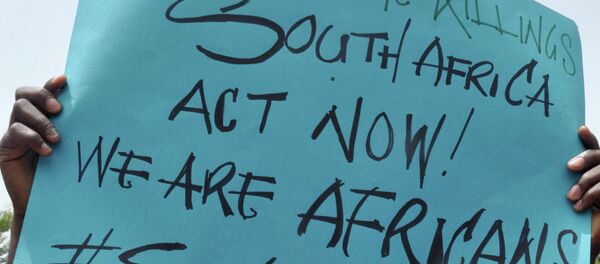 KILLINGS
SOUTH AFRICA
ACT NOW!
WE ARE AFRICANS